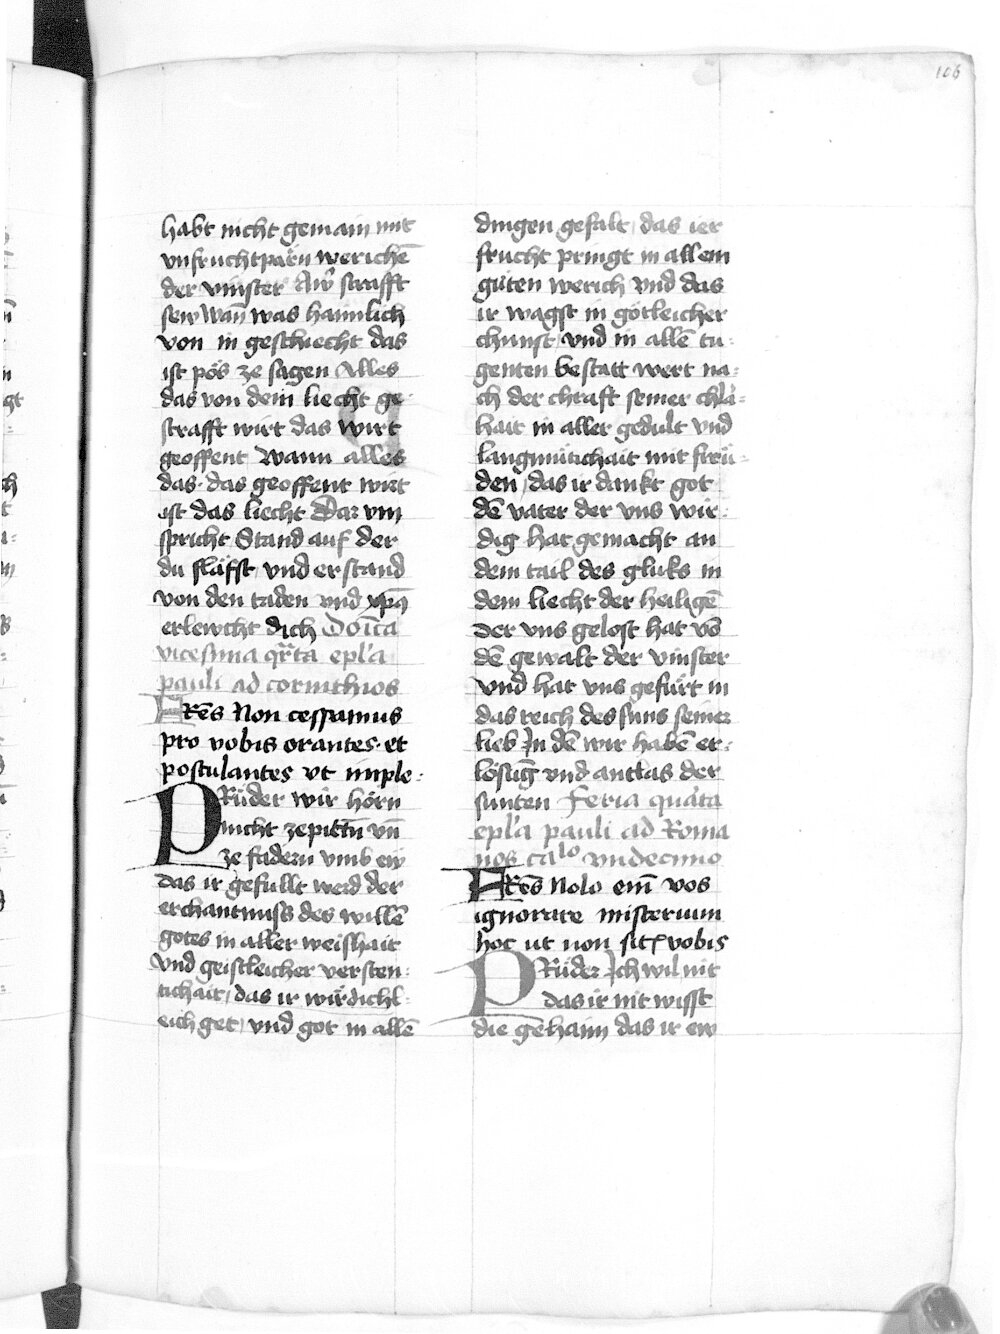 106
habt nicht gemain mit
vnfruchtpärn werichē
der vinster Aw̄ strafft
sew Wan̄ was haimlich
von in geschiecht das
ist pös ze sagen Alles
das von dem liecht ge
strafft wirt das wirt
geoffent Wann alles
das· das geoffent wirt
ist das liecht Dar vm
spricht Stand auf der
du släfst / vnd erstand
von den taden vnd xp̄s
erlewcht dich Do͞ica
vicesima qr̄ta epl'a
pauli ad corinthios
FRēs Non cessamus
pro vobis orantes· et
postulantes vt imple :
PRüder wir hörn
nicht ze pittn̄ vn̄
ze fadern vmb ew
das ir gefullt werd der
erchantnuss des willē
gotes in aller weishait
vnd geistleicher versten :
tichait / das ir wirdichl :
eich get / vnd got in allē
dingen gefalt / das ier
frucht pringt in allem
guten werich vnd das
ir wagst in götleicher
chunst / vnd in allē tu :
genten bestatt wert na :
ch der chraft seiner chlā :
hait in aller gedult vnd
langmütichait mit frëu :
den / das ir dankt got
dē vater der vns wir :
dig hat gemacht an
dem tail des gluks in
dem liecht der heiligē
der vns gelost hat vō
dē gewalt der vinster
vnd hat vns gefürt in
das reich des suns seiner
lieb In dē wir habē er :
lösūg vnd antlas der
sunten Feria quarta
epl'a pauli ad Roma
nos ca^lo vndecimo
FRēs Nolo eni͞ vos
ignorare misterium
hoc ut non sitis vobis
PRüder Ich wil nit
das ir nit wisst
die gehaim das ir ew